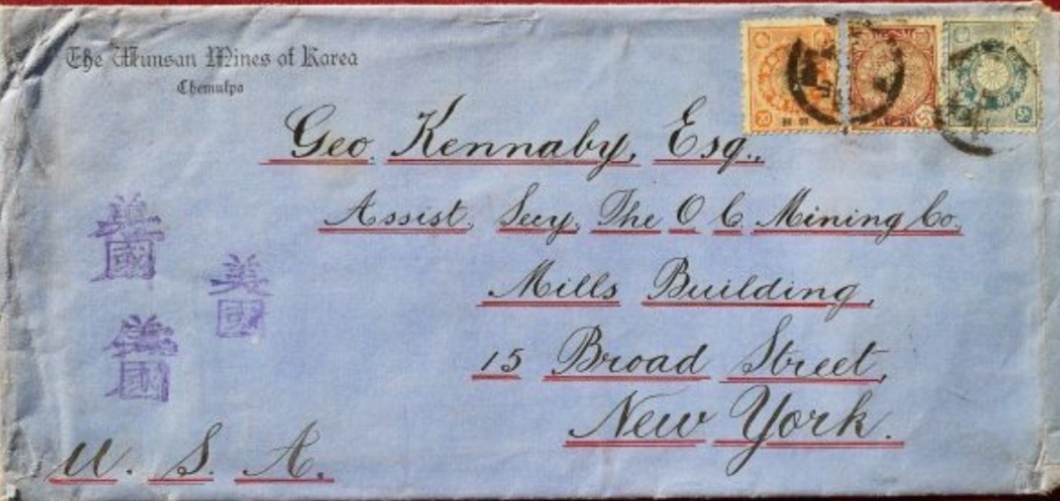 The Wunsan Mines of Korea
Chemulpo
Geo. Kennaby, Esq.,
Assist. Secy. The O C Mining Co.
Mills Building,
15 Broad Street,
New York.
U. S. A.
美國
美國
美國